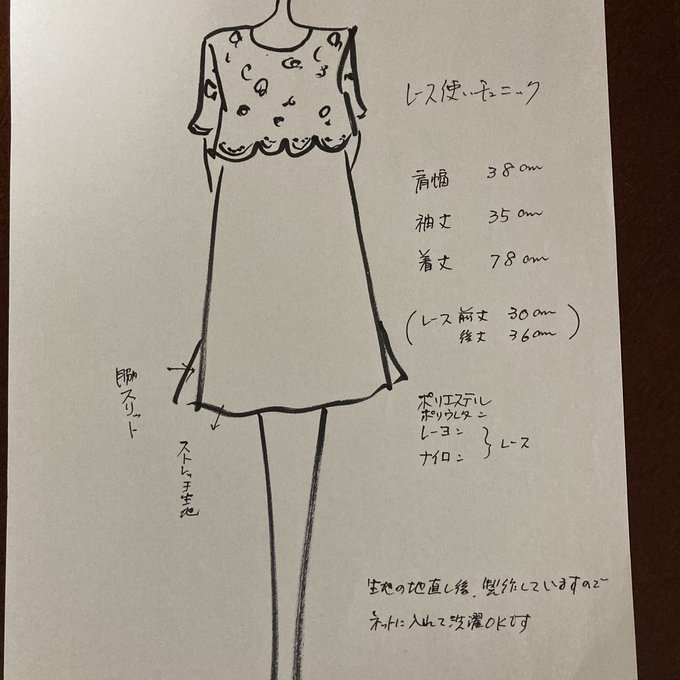 レース使いチュニック
肩幅 38cm
袖丈 35cm
着丈 78cm
(レース 前丈 30cm
後丈 36cm)
脇スリット
ストレッチ生地
ポリエステル
ポリウレタン
レーヨン
ナイロン } レース
生地の地直し後、製作していますので
ネットに入れて洗濯OKです